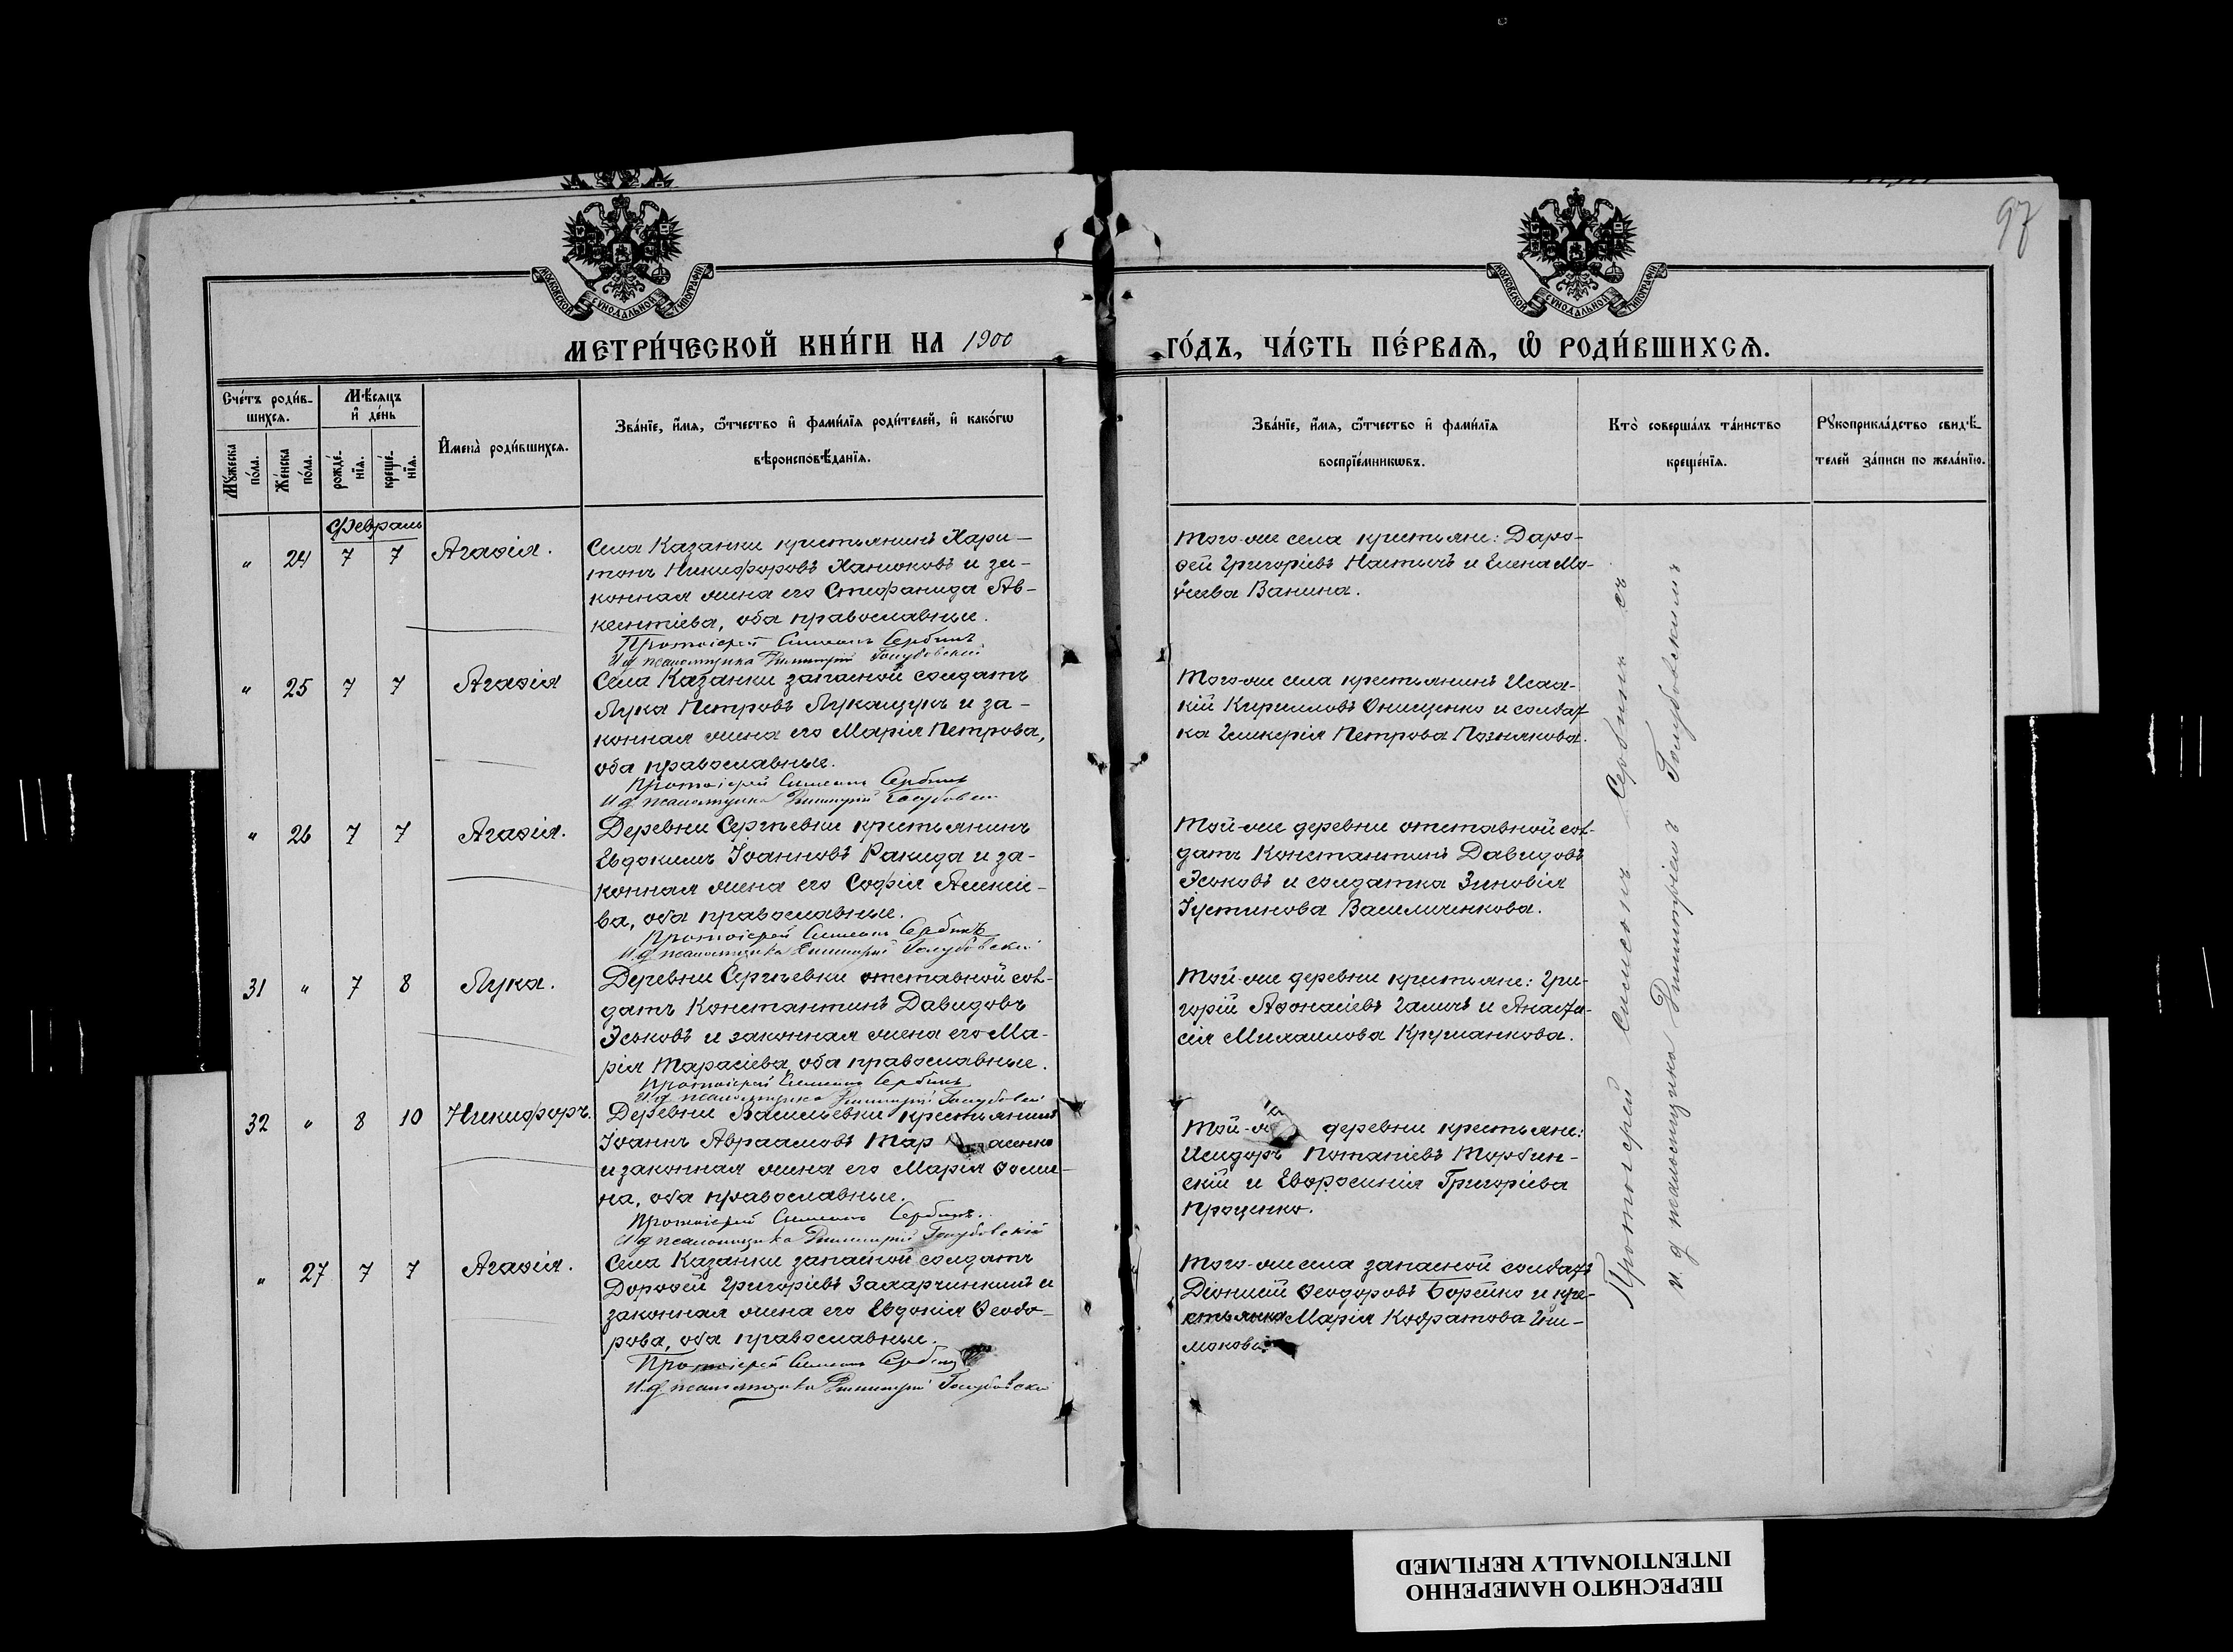 97
МОСКОВСКОЙ СУНОДАЛЬНОЙ ТИПОГРАФІИ
МОСКОВСКОЙ СУНОДАЛЬНОЙ ТИПОГРАФІИ
МЕТРИ́ЧЕСКОЙ КНИ́ГИ НА 1900
ГО́ДЪ, ЧА́СТЬ ПЕ́РВАѦ, Ѡ҆ РОДИ́ВШИХСѦ.
Сче́тъ роди́в-
шихсѧ.
Мꙋ́жеска
по́ла.
Же́нска
по́ла.
Мѣ́сѧцъ
и҆ де́нь
рожде́-
нїѧ.
креще́-
нїѧ.
И҆мена̀ роди́вшихсѧ.
Зва́нїе, и҆́мѧ, ѻ҆́тчество и҆ фами́лїѧ роди́телей, и҆ како́гѡ
вѣроисповѣ́данїѧ.
Зва́нїе, и҆́мѧ, ѻ҆́тчество и҆ фами́лїѧ
воспрїе́мникѡвъ.
Кто̀ соверша́лъ та́инство
креще́нїѧ.
Рꙋкоприкла́дство свидѣ́-
телей за́писи по жела́нїю.
Февраль
" 24 7 7 Агаѳія.
Села Казанки крестьянинъ Хари-
тонъ Никифоровъ Ханюковъ и за-
конная жена его Стефанида Ав-
кентіева, оба православные.
Протоіерей Симеонъ Сербинъ
И.д. псаломщика Димитрій Голубовскій
Того-же села крестьяне: Доро-
ѳей Григорьевъ и Елена Мо-
Ванина.
" 25 7 7 Агаѳія
Села Казанки запасной солдатъ
Лука Петровъ Лукащукъ и за-
конная жена его Марія Петрова,
оба православные.
Протоіерей Симеонъ Сербинъ
И.д. псаломщика Димитрій Голубовскій
Того-же села крестьянинъ Исаа-
кій Кирилловъ Онищенко и солдат-
ка Гликерія Петрова Познякова.
" 26 7 7 Агаѳія.
Деревни Сергѣевки крестьянинъ
Евдокимъ Іоанновъ Ракида и за-
конная жена его Софія Алексіе-
ва, оба православные.
Протоіерей Симеонъ Сербинъ
И.д. псаломщика Димитрій Голубовскій
Той-же деревни отставной сол-
датъ Константинъ Давидовъ
Эськовъ и солдатка Зиновія
Іустинова Васильченкова.
31 " 7 8 Лука.
Деревни Сергѣевки отставной сол-
датъ Константинъ Давидовъ
Эськовъ и законная жена его Ма-
рія Тарасіева, оба православные.
Протоіерей Симеонъ Сербинъ
И.д. псаломщика Димитрій Голубовскій
Той-же деревни крестьяне: Гри-
горій Аѳонасіевъ Галичъ и Анаста-
сія Михаилова
32 " 8 10 Никифоръ.
Деревни Васильевки крестьянинъ
Іоаннъ Авраамовъ Тар асенко
и законная жена его Марія Ѳоми-
на, оба православные.
Протоіерей Симеонъ Сербинъ.
И.д. псаломщика Димитрій Голубовскій
Той-же деревни крестьяне:
Исидоръ Потапіевъ Торбин-
скій и Евѳросинія Григоріева
Проценко.
" 27 7 7 Агаѳія.
Села Казанки запасной солдатъ
Дороѳей Григоріевъ и
законная жена его Евдокія Ѳеодо-
рова, оба православные.
Протоіерей Симеонъ Сербинъ
И.д. псаломщика Димитрій Голубовскій
Того-же села запасной солдатъ
Діонисій Ѳеодоровъ Борейко и кре-
стьянка Марія Кодратова

Протоіерей Симеонъ Сербинъ съ
и.д. псаломщика Димитріемъ Голубовскимъ
ПЕРЕСНЯТО НАМЕРЕННО
INTENTIONALLY REFILMED